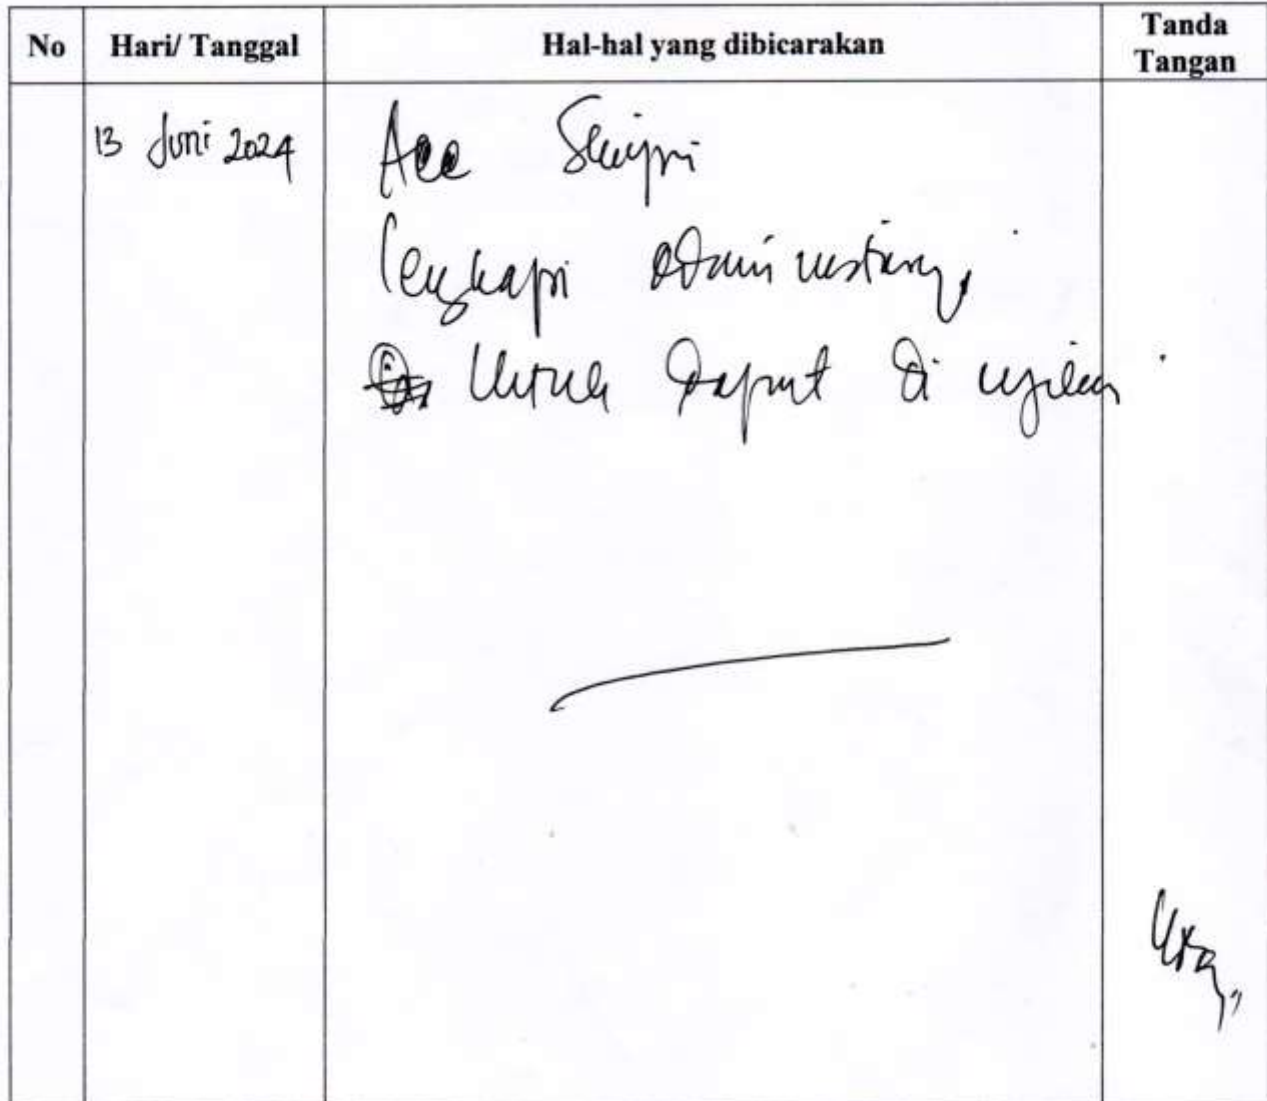 No Hari/ Tanggal Hal-hal yang dibicarakan Tanda Tangan
13 Juni 2024 Acc Skripsi
lengkapi administrasi
Untuk dapat di ujian